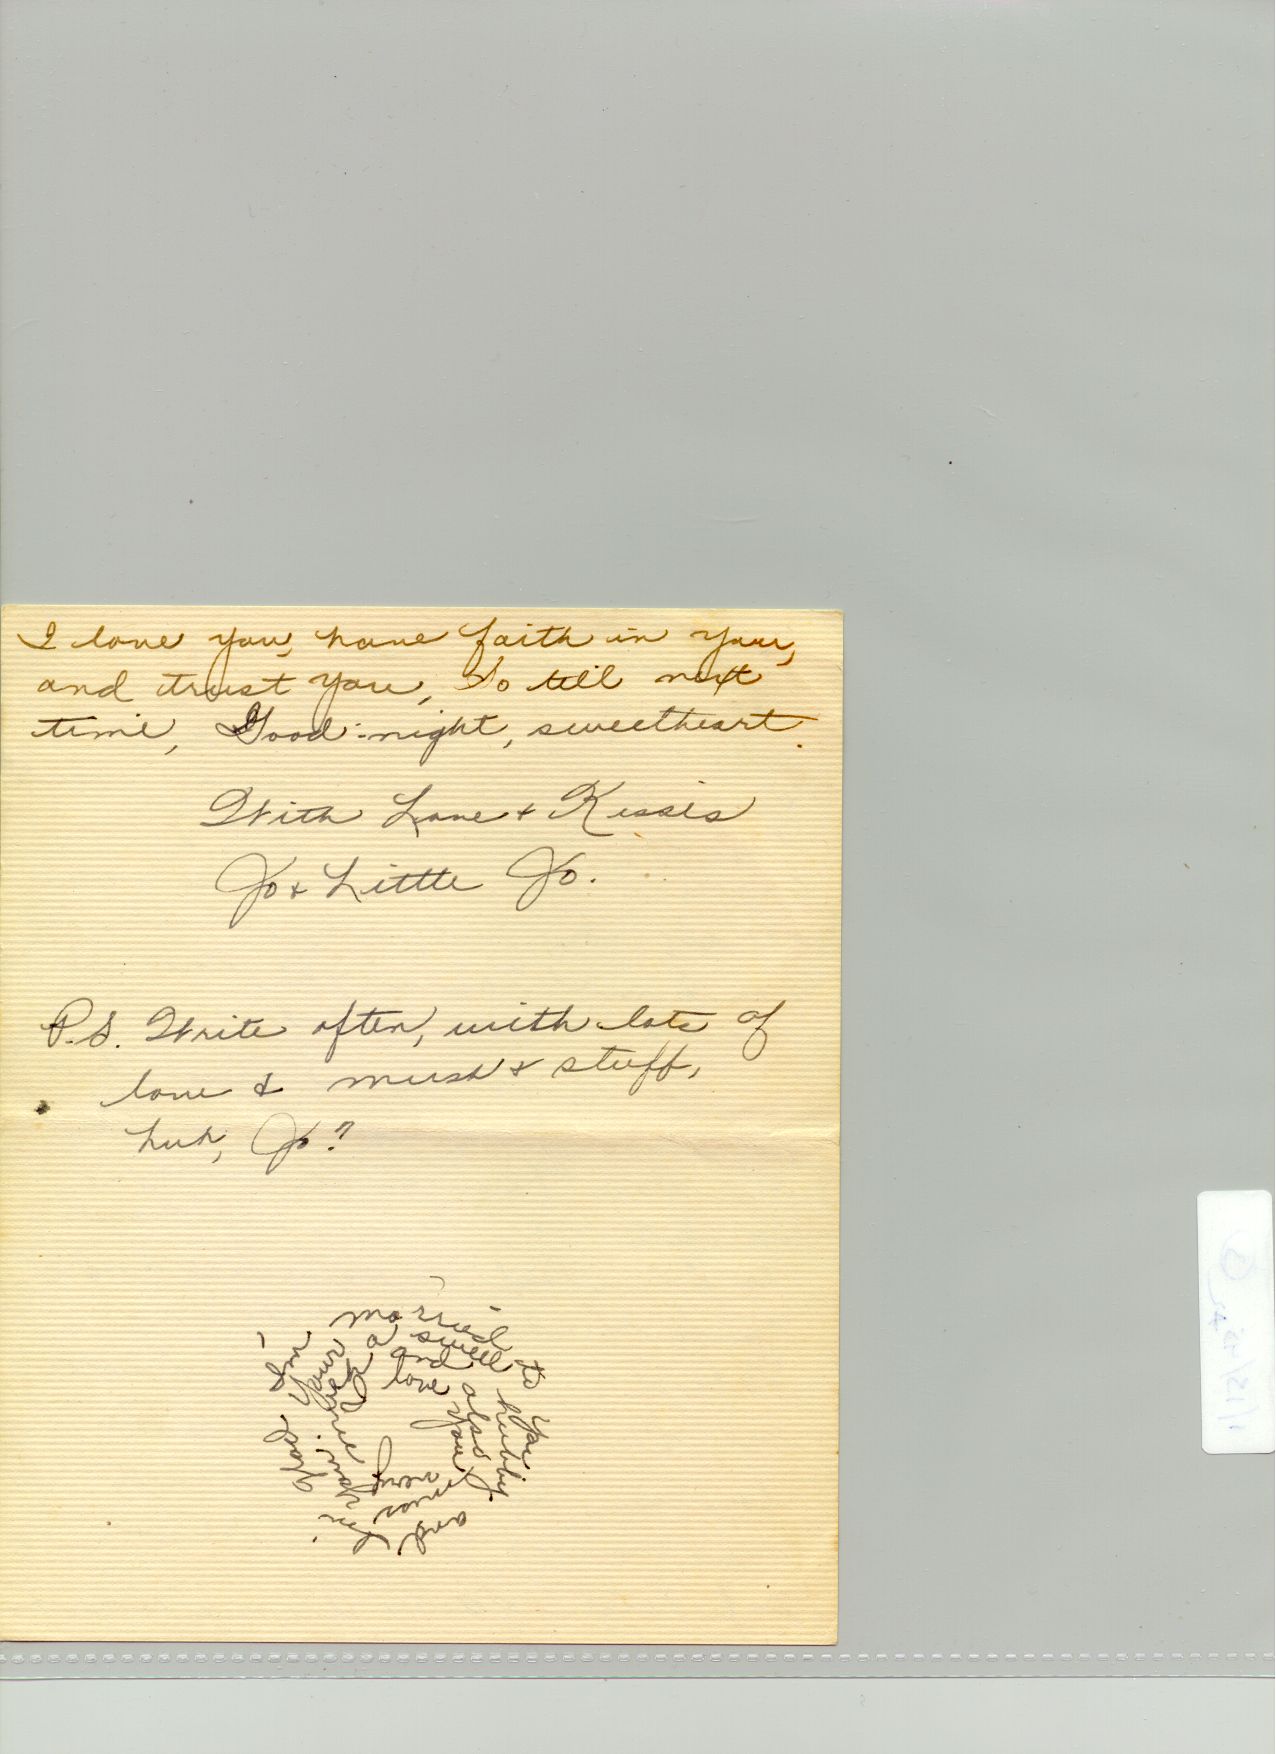 I love you, have faith in you,
and trust you, So till next
time, Good-night, sweetheart.
With Love & Kisses
Jo & Little Jo.
P.S. Write often, with lots of
love & mush & stuff,
huh, Jo?
I'm glad
married to you
a swell hubby
and also
love you
and miss
very
you.